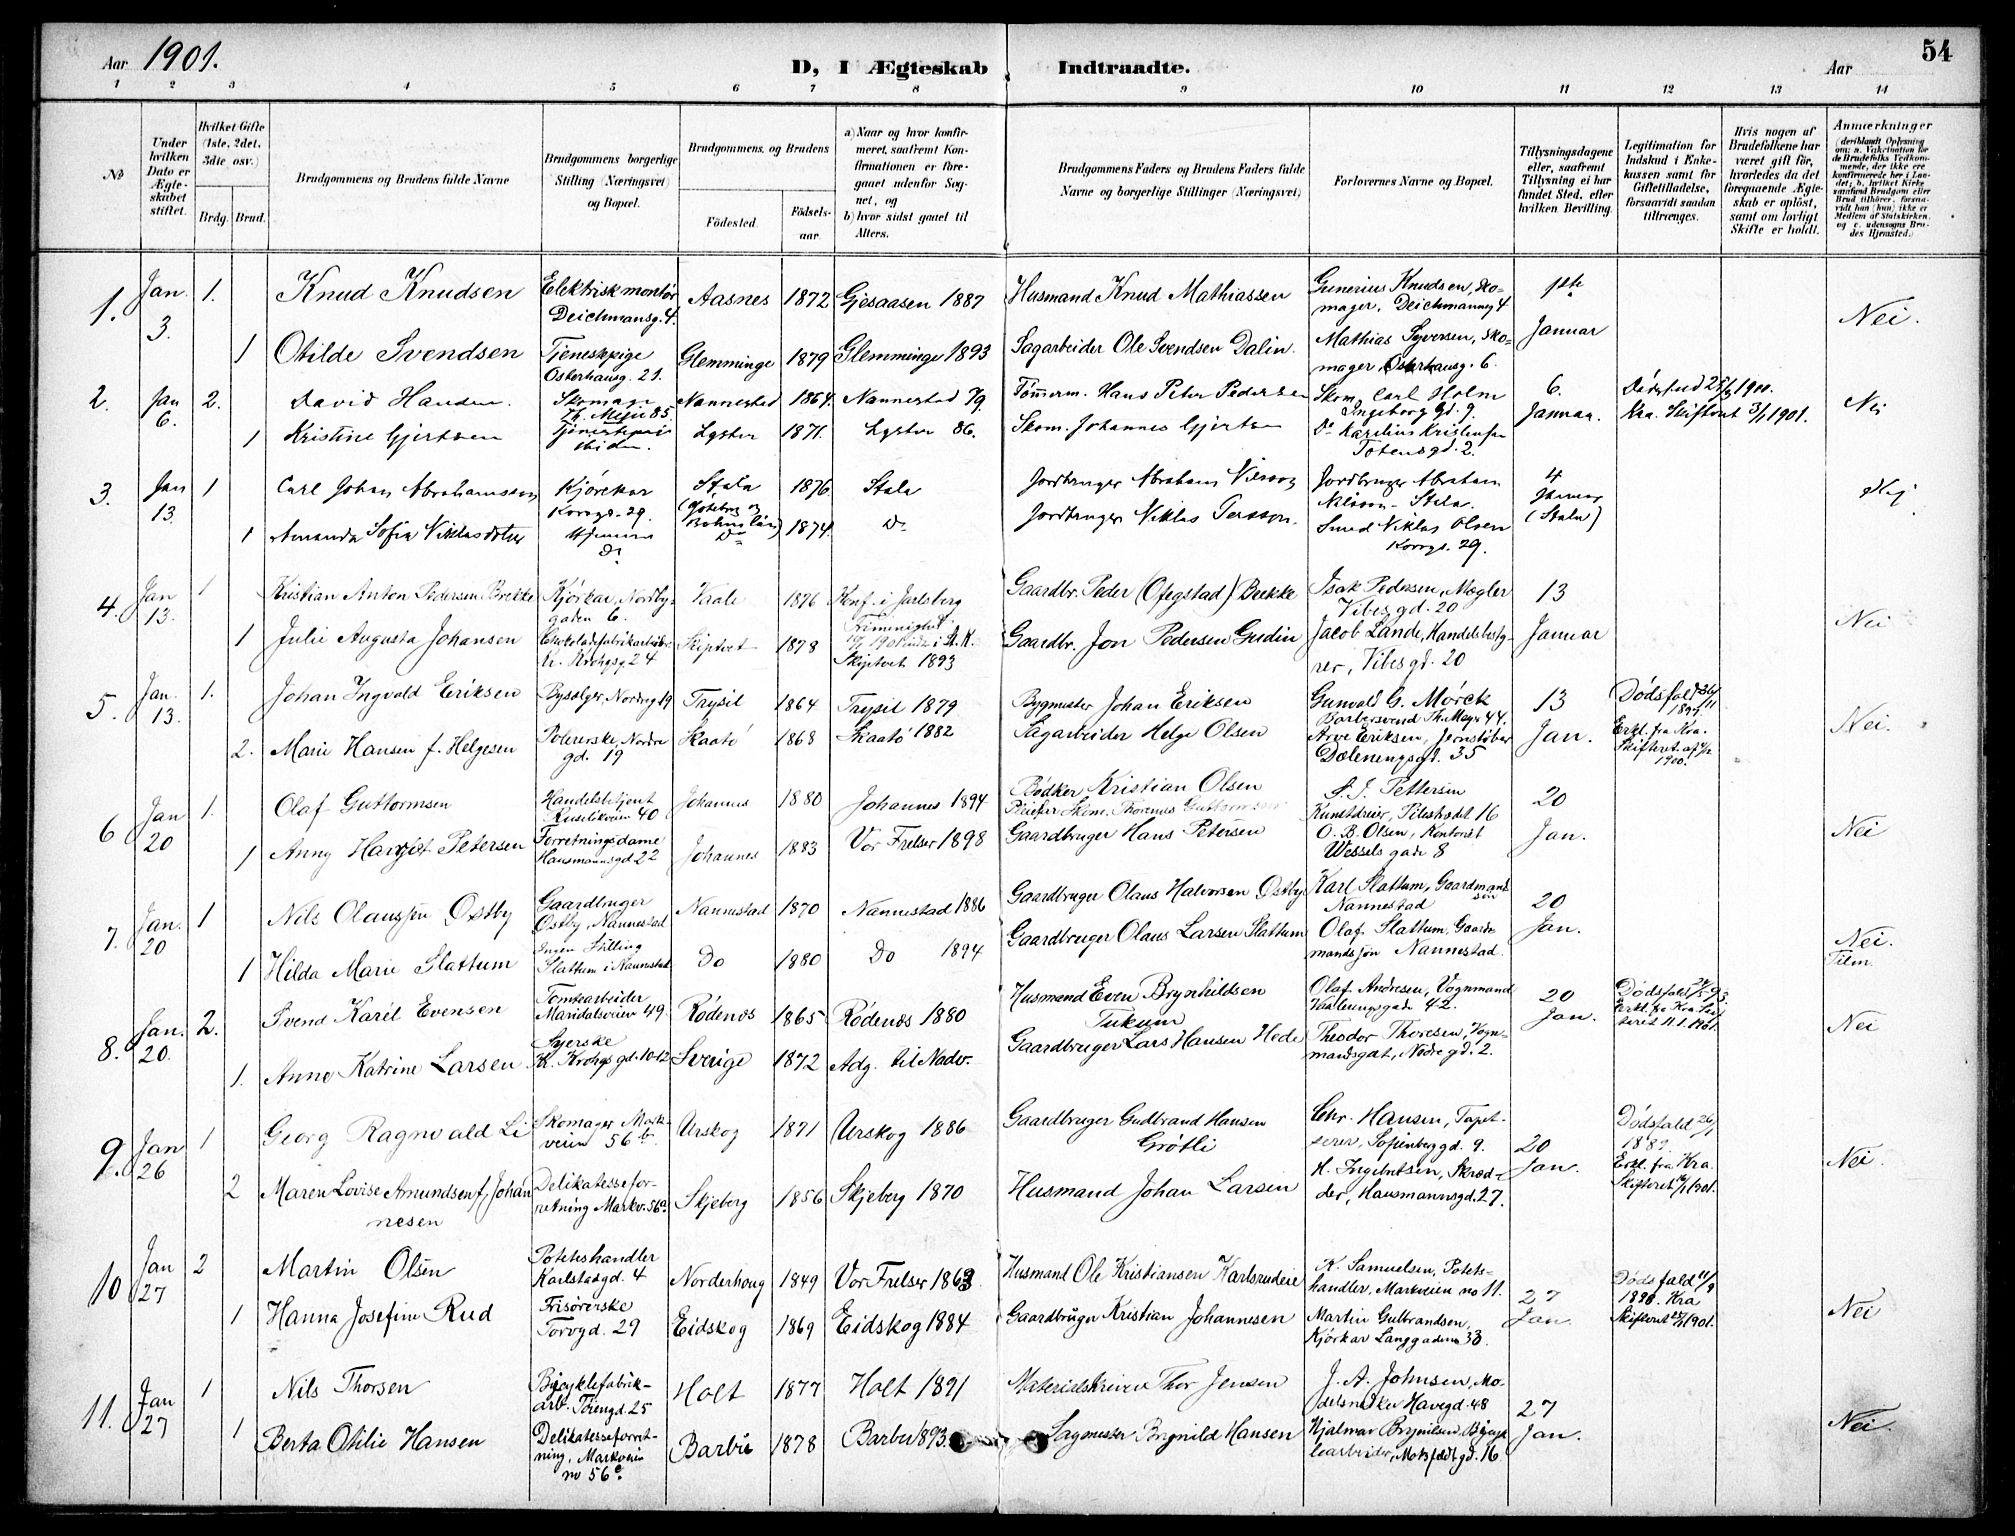 Aar 1901.
D, I Ægteskab Indtraadte.
Aar
54
1 2 3 4 5 6 7 8 9 10 11 12 13 14
No
Under hvilken Dato er Ægteskabet stiftet.
Hvilket Gifte (1ste, 2det, 3dte osv.)
Brdg. Brud.
Brudgommens og Brudens fulde Navne
Brudgommens borgerlige Stilling (Næringsvei) og Bopæl.
Brudgommens og Brudens
Födested.
Födselsaar.
a) Naar og hvor konfirmeret, saafremt Konfirmationen er foregaaet udenfor Sognet, og
b) hvor sidst gaaet til Alters.
Brudgommens Faders og Brudens Faders fulde Navne og borgerlige Stillinger (Næringsvei)
Forlovernes Navne og Bopæl.
Tillysningsdagene eller, saafremt Tillysning ei har fundet Sted, efter hvilken Bevilling.
Legitimation for Indskud i Enkekassen samt for Giftetilladelse, forsaavidt saadan tiltrænges.
Hvis nogen af Brudefolkene har været gift før, hvorledes da det foregaaende Ægteskab er oplöst, samt om lovligt Skifte er holdt.
Anmærkninger
1. Jan 3. 1. Knud Knudsen Elektriskmontör Deichmansg. 4. Aasnes 1872 Gjesaasen 1887 Husmand Knud Mathiassen Gunerius Knudsen, Skomager, Deichmannsg 4 1ste Januar Nei.
1 Otilde Svendsen Tjenestepige Osterhausg. 21. Glemminge 1879 Glemminge 1893 Sagarbeider Ole Svendsen Dalin. Mathias Syversen, Skomager Osterhausg. 6.
2. Jan 6. 2. David Hansen. Nannestad 1864. Nannestad 79. Tömmerm. Hans Peter Pedersen Skom. Carl Holm Ingeborg gd. 9. 6. Januar. Kra. Skifteret 3/1 1901. Nei
1 Kristine Gjertsen ibidem. Lyster 1871. Lyster 86. Skom. Johannes Gjertsen Do Karelius Kristensen Totensgd. 2.
3. Jan 13. 1 Carl Johan Abrahamsson Kjörekar Korsgd. 29. Stala (Göteborg og Bohus län) 1876 Stala Jordbruger Abraham Nilsson Jordbruger Abraham Nilsson - Stala. 4 Januar (Stala) Nei
1 Amanda Sofia Niklasdotter Hjemme Do Do 1874. Do Jordbruger Niklas Persson. Smed Niklas Olsen Korsgd. 29.
4. Jan 13. 1 Kristian Anton Pedersen Brekke Kjörkar, Nordbygaden 6. Vaale 1876 Konf. i Jarlsberg Gaardbr. Peder (Ofegstad) Brekke Isak Pedersen, Mægler Vibesgd. 20 13 Januar Nei
1 Julie Augusta Johansen Kr. Krohgsg. 24 Skiptvet 1878 Skiptvet 1893 Gaardbr. Jon Pedersen Gudin Jacob Lande, Handelsbestyrer, Vibesgd. 20
5. Jan. 13. 1. Johan Ingvald Eriksen Bysælger, Nordreg 19 Trysil 1864 Trysil 1879 Bygmester Johan Eriksen Gunvald G. Mörck Barbersvend Th. Mejers 44. 13 Jan. Dödsfald 1899 Erkl. fra Kra. Skifteret 1900. Nei.
2. Marie Hansen f. Helgesen Polererske, Nordregd. 19 Skaatö 1868 Skaatö 1882 Sagarbeider Helge Olsen Arve Eriksen, Jernstöber Dæleningsgd. 35
6 Jan 20 1. Olaf Guttormsen Handelsbetjent Ruselökveien 40 Johannes 1880 Johannes 1894 Bödker Kristian Olsen S. J. Pettersen Kunstdreier, Pilestrædet 16 20 Jan. Nei
1 Anny Hargjet Petersen Forretningsdame Hausmannsgd 22 Johannes 1883 Vor Frelser 1898 Gaardbruger Hans Petersen O. B. Olsen, Kontorist Wessels gade 8
7. Jan. 20 1 Nils Olaussen Ostby Gaardbruger Ostby, Nannestad Nannestad 1870 Nannestad 1886 Gaardbruger Olaus Halvorsen Ostby Karl Slattum, Gaardmandssön Nannestad 20 Jan. Nei.
1 Hilda Marie Slattum Ingen Stilling Slattum i Nannestad Do 1880 Do 1894 Gaardbruger Olaus Larsen Slattum Olaf Slattum, Gaardmandssön Nannestad.
8. Jan. 20. 2. Svend Karel Evensen Tomtearbeider Maridalsveien 49. Rödenæs 1865 Rödenæs 1880 Husmand Even Brynhildsen Tukum Olaf Andresen, Vognmand Vaalerenggade 42. 20 Jan. Dödsfald 93. 11.1.1901. Nei
1. Anne Katrine Larsen Syerske Kr. Krohgs gd. 10-12 Sverige 1872 Adg. til Nadv. Gaardbruger Lars Hansen Hede Theodor Thoresen, Vognmandsgat, Nordre gd. 2.
9. Jan 26 1 Georg Ragnvald Li Skomager Markveien 56 b. Urskog 1871 Urskog 1886 Gaardbruger Gudbrand Hansen Grötli Chr. Hansen, Tapetserer, Sofienberggd. 9. 20 Jan. Dödsfald 26/1 1889. Erkl. fra Kra. Skifteret 1901. Nei.
2 Maren Lovise Amundsen f. Johannesen Delikatesseforretning Markv. 56 a. Skjeberg 1856 Skjeberg 1870 Husmand Johan Larsen H. Ingebretsen, Skrædder, Hausmannsgd. 27.
10 Jan 27 2 Martin Olsen Potetshandler Karlstadgd. 4 Norderhoug 1849 Vor Frelser 1863 Husmand Ole Kristiansen Karlsrudeie K. Samuelsen, Potetshandler, Markveien no 11. 27 Jan. Dödsfald 11/9 1898. Kra Skifteret 1901. Nei
1 Hanna Josefine Rud Frisörerske Torvgd. 29 Eidskog 1869 Eidskog 1884 Gaardbruger Kristian Johannesen Martin Gulbrandsen, Kjörkar Langgaden 33.
11. Jan 27 1 Nils Thorsen Bicyklefabrikarb. Töiengd. 25 Holt 1877 Holt 1891 Materialskriver Thor Jensen J. A. Johnsen, Modelsnedker Havegd. 48 27 Jan. Nei.
1 Berta Otilie Hansen Delikatesseforretning, Markveien no 56 c. Barbu 1878 Barbu 1893. Sagmester Brynild Hansen Hjalmar Brynildsen, Bicyklearbeider, Motzfeldtgd. 16